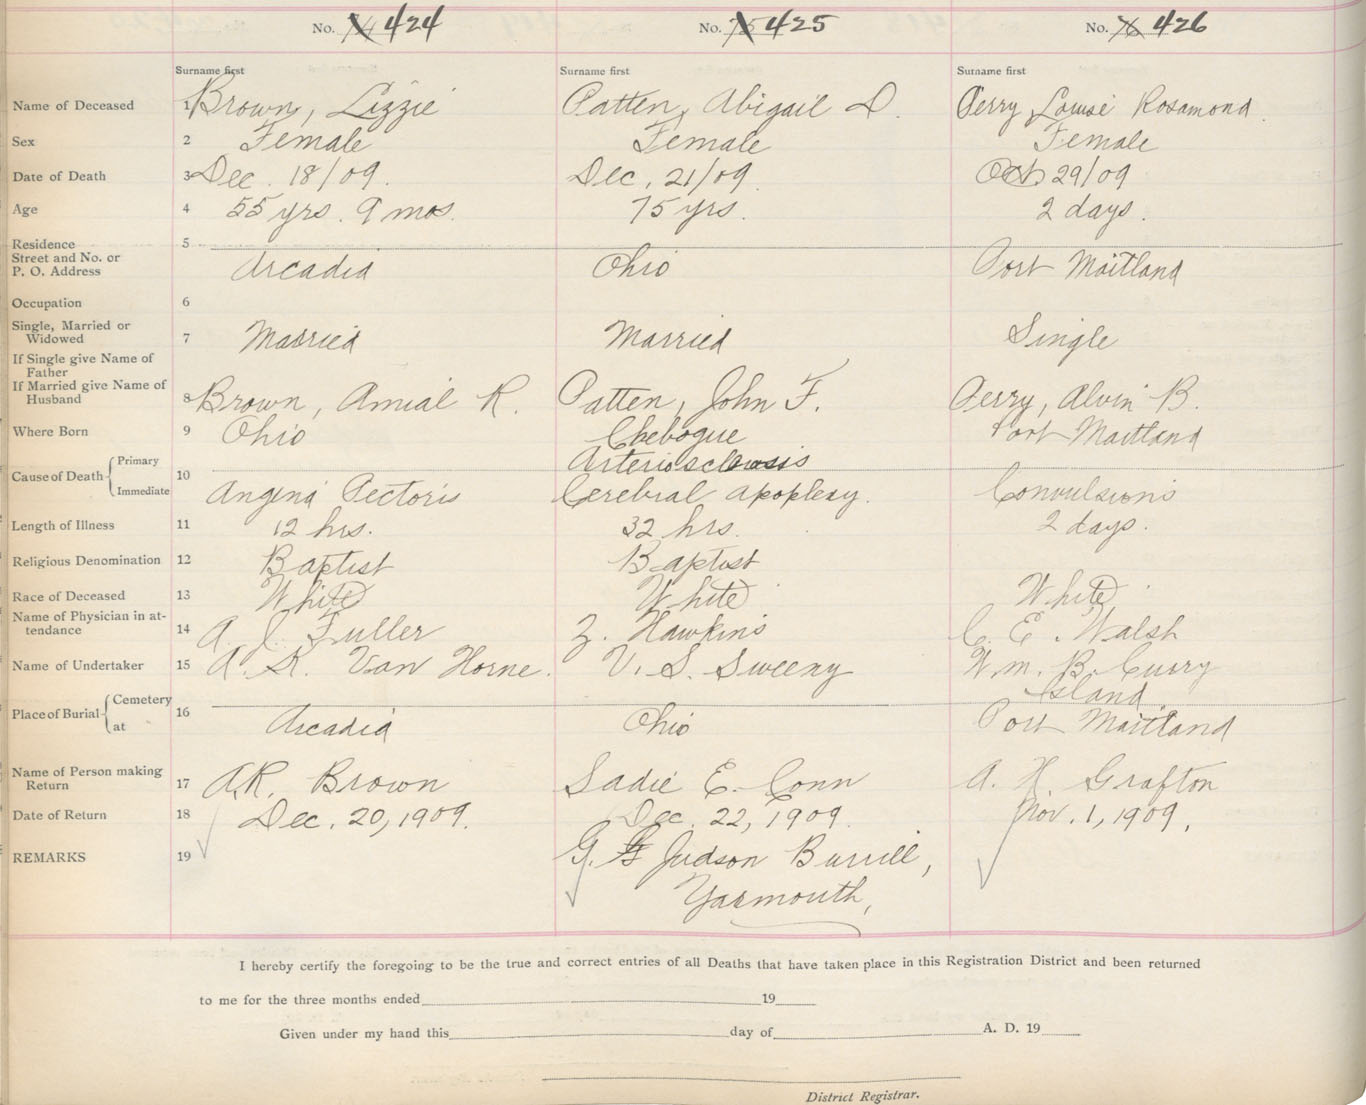 No. 74 424 No. 75 425 No. 76 426
Surname first Surname first Surname first
Name of Deceased 1 Brown, Lizzie Patten, Abigail D. Perry, Louise Rosamond.
Sex 2 Female Female Female
Date of Death 3 Dec. 18/09. Dec. 21/09. Oct 29/09
Age 4 55 yrs. 9 mos. 75 yrs. 2 days.
Residence 5
Street and No. or
P. O. Address Arcadia Ohio Port Maitland
Occupation 6
Single, Married or
Widowed 7 Married Married Single
If Single give Name of
Father
If Married give Name of
Husband 8 Brown, Amial R. Patten, John F. Perry, Alvin B.
Where Born 9 Ohio Chebogue Port Maitland
Cause of Death Primary 10 Arteriosclerosis
Immediate Angina Pectoris Cerebral apoplexy. Convulsions
Length of Illness 11 12 hrs. 32 hrs. 2 days.
Religious Denomination 12 Baptist Baptist
Race of Deceased 13 White White White
Name of Physician in at-
tendance 14 A. J. Fuller Z. Hawkins C. E. Walsh
Name of Undertaker 15 A. K. Van Horne. V. S. Sweeny Wm. B. Curry
Place of Burial Cemetery 16 Island
at Arcadia Ohio Port Maitland
Name of Person making
Return 17 A.R. Brown Sadie E. Conn A. H. Grafton
Date of Return 18 Dec. 20, 1909. Dec. 22, 1909. Nov. 1, 1909.
REMARKS 19 G. G Judson Burrill,
Yarmouth,
I hereby certify the foregoing to be the true and correct entries of all Deaths that have taken place in this Registration District and been returned
to me for the three months ended 19
Given under my hand this day of A. D. 19
District Registrar.